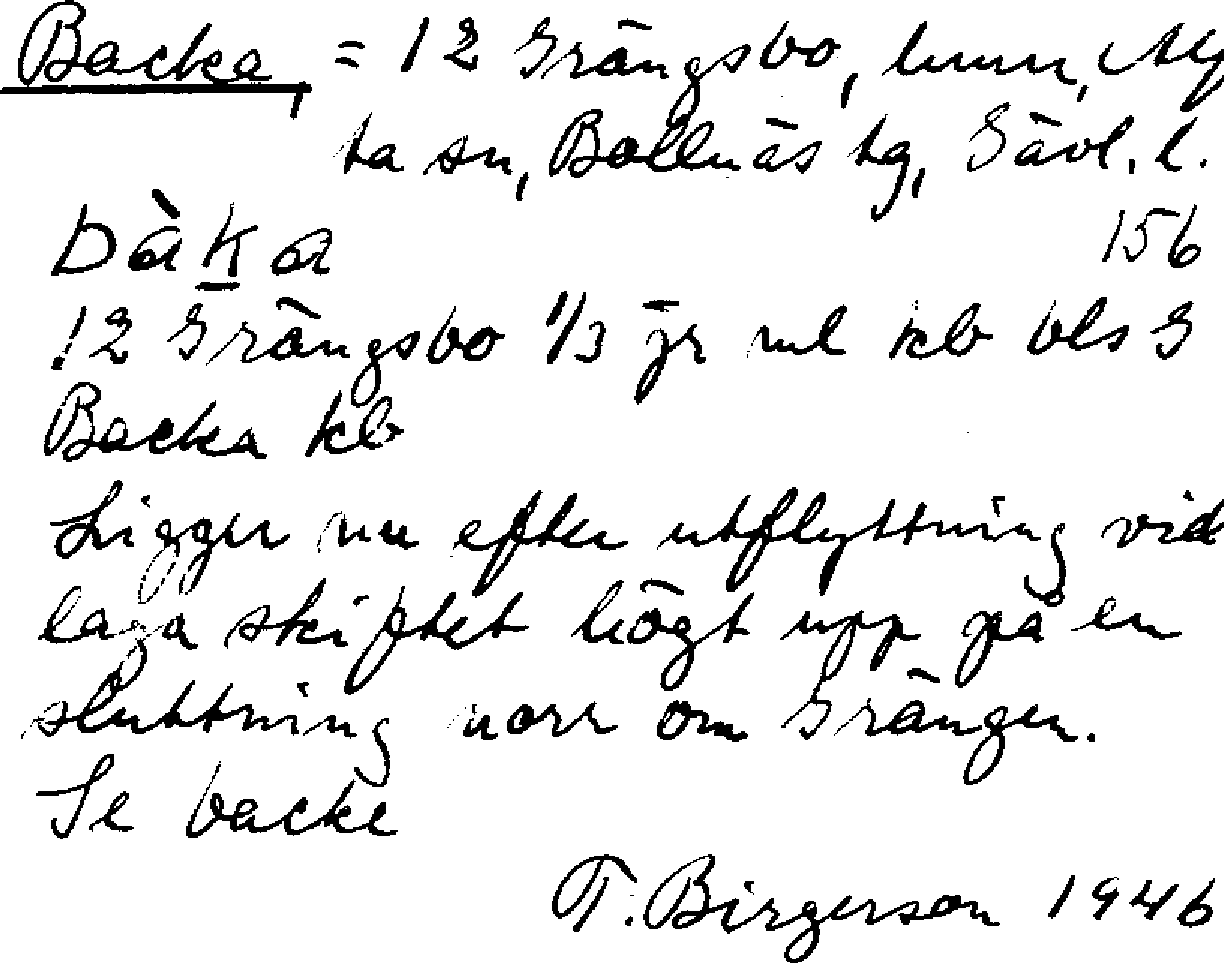 Backa, = 12 Grängsbo, hmn, Alf
ta sn, Bollnäs tg, Gävl. l.
bàka 156
12 Grängsbo 1/3 jr ml kb bls G
Backa kb
Ligger nu efter utflyttning vid
laga skiftet högt upp på en
sluttning norr om Grängen.
Se backe
T. Birgerson 1946